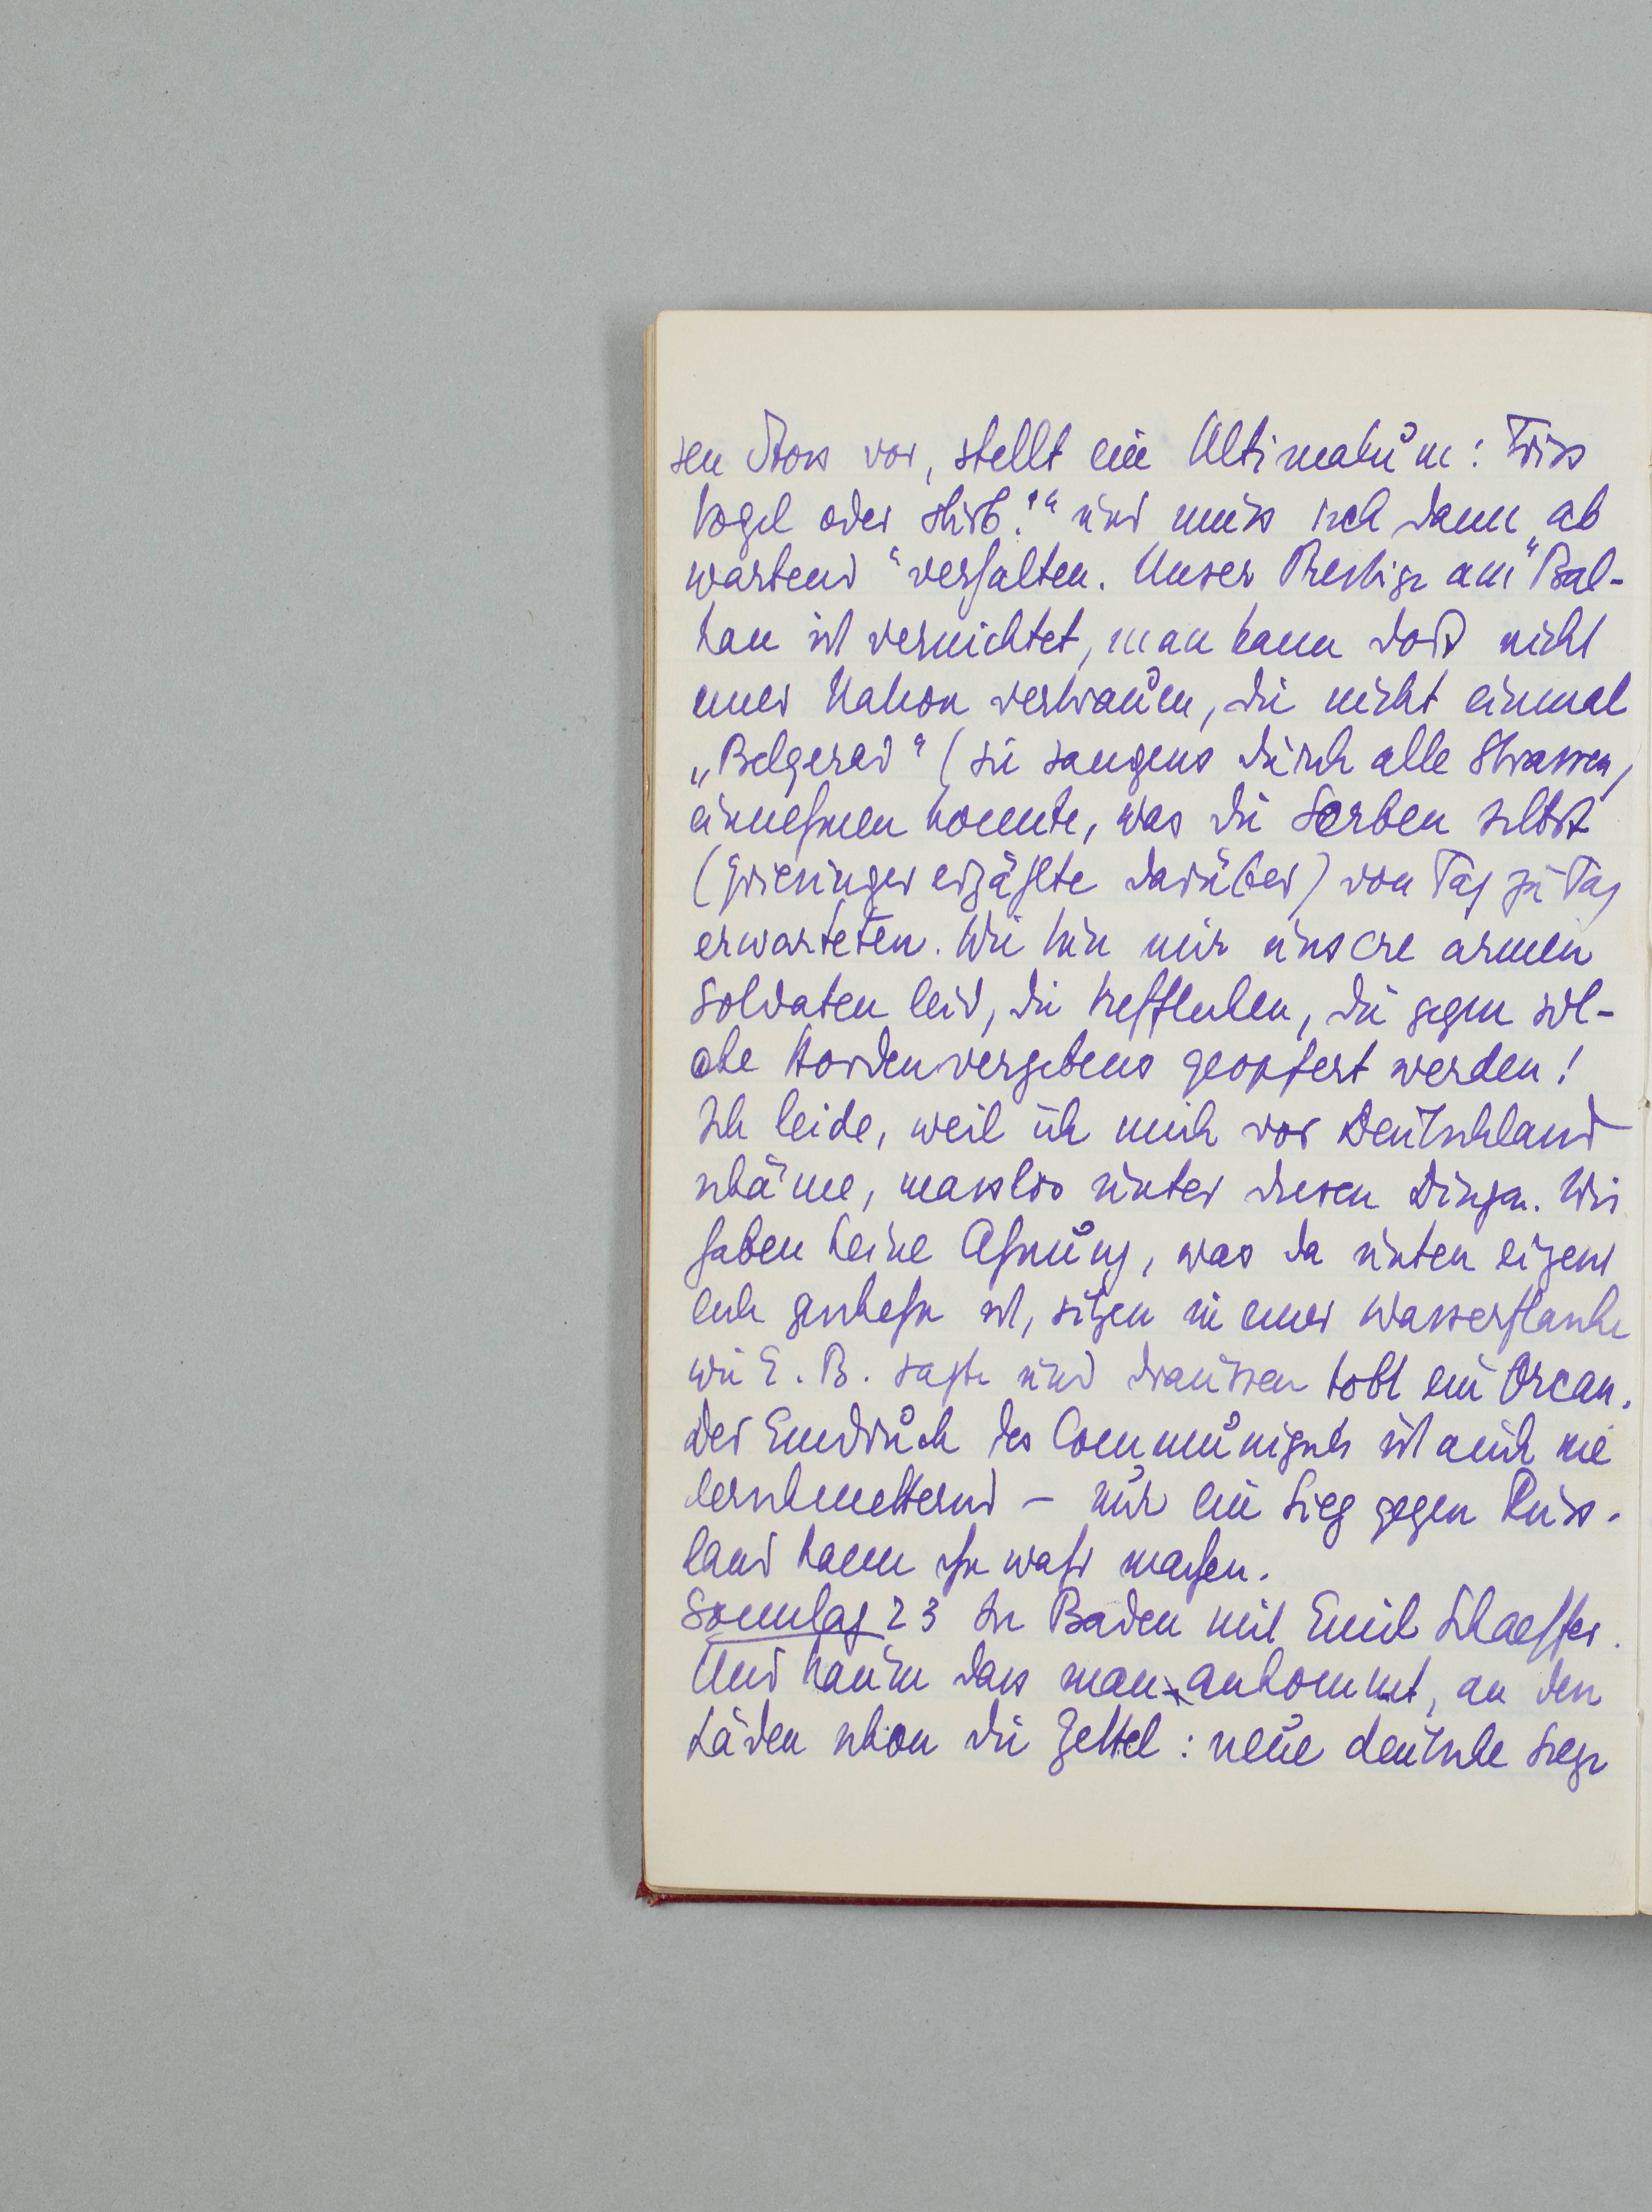 sen Stoss vor, stellt ein Ultimatum: Friss
Vogel oder stirb!“ und muss sich dann „ab
wartend“ verhalten. Unser Prestige am Bal-
kan ist vernichtet, man kann dort nicht
einer Nation vertrauen, die nicht einmal
„Belgerad“ (sie sangens durch alle Strassen,
einnehmen konnte, was die Serben selbst
(Grieninger erzählte darüber) von Tag zu Tag
erwarteten. Wie thun mir unsere armen
Soldaten leid, die trefflichen, die gegen sol-
che Horden vergebens geopfert werden!
Ich leide, weil ich mich vor Deutschland
schäme, masslos unter diesen Dingen. Wir
haben keine Ahnung, was da unten eigent
lich geschehn ist, sitzen in einer Wasserflasche
wie E. B. sagte und draussen tobt ein Orcan.
Der Eindruck des Communiqués ist auch nie
derschmetternd – nur ein Sieg gegen Russ-
land kann ihn wett machen.
Sonntag 23 In Baden mit Emil Schaeffer.
Und kaum dass man ankommt, an den
Läden schon die Zettel: neue deutsche Siege